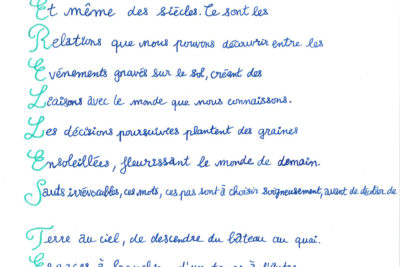 Et même des siècles. Ce sont les
Relations que nous pouvons découvrir entre les
Evénements gravés sur le sol, créant des
Liaisons avec le monde que nous connaissons.
Les décisions poursuivies plantent des graines
Ensoleillées, fleurissant le monde de demain.
Sauts irrévocables, ces mots, ces pas sont à choisir soigneusement, avant de décider de
Terre au ciel, de descendre du bâteau au quai.